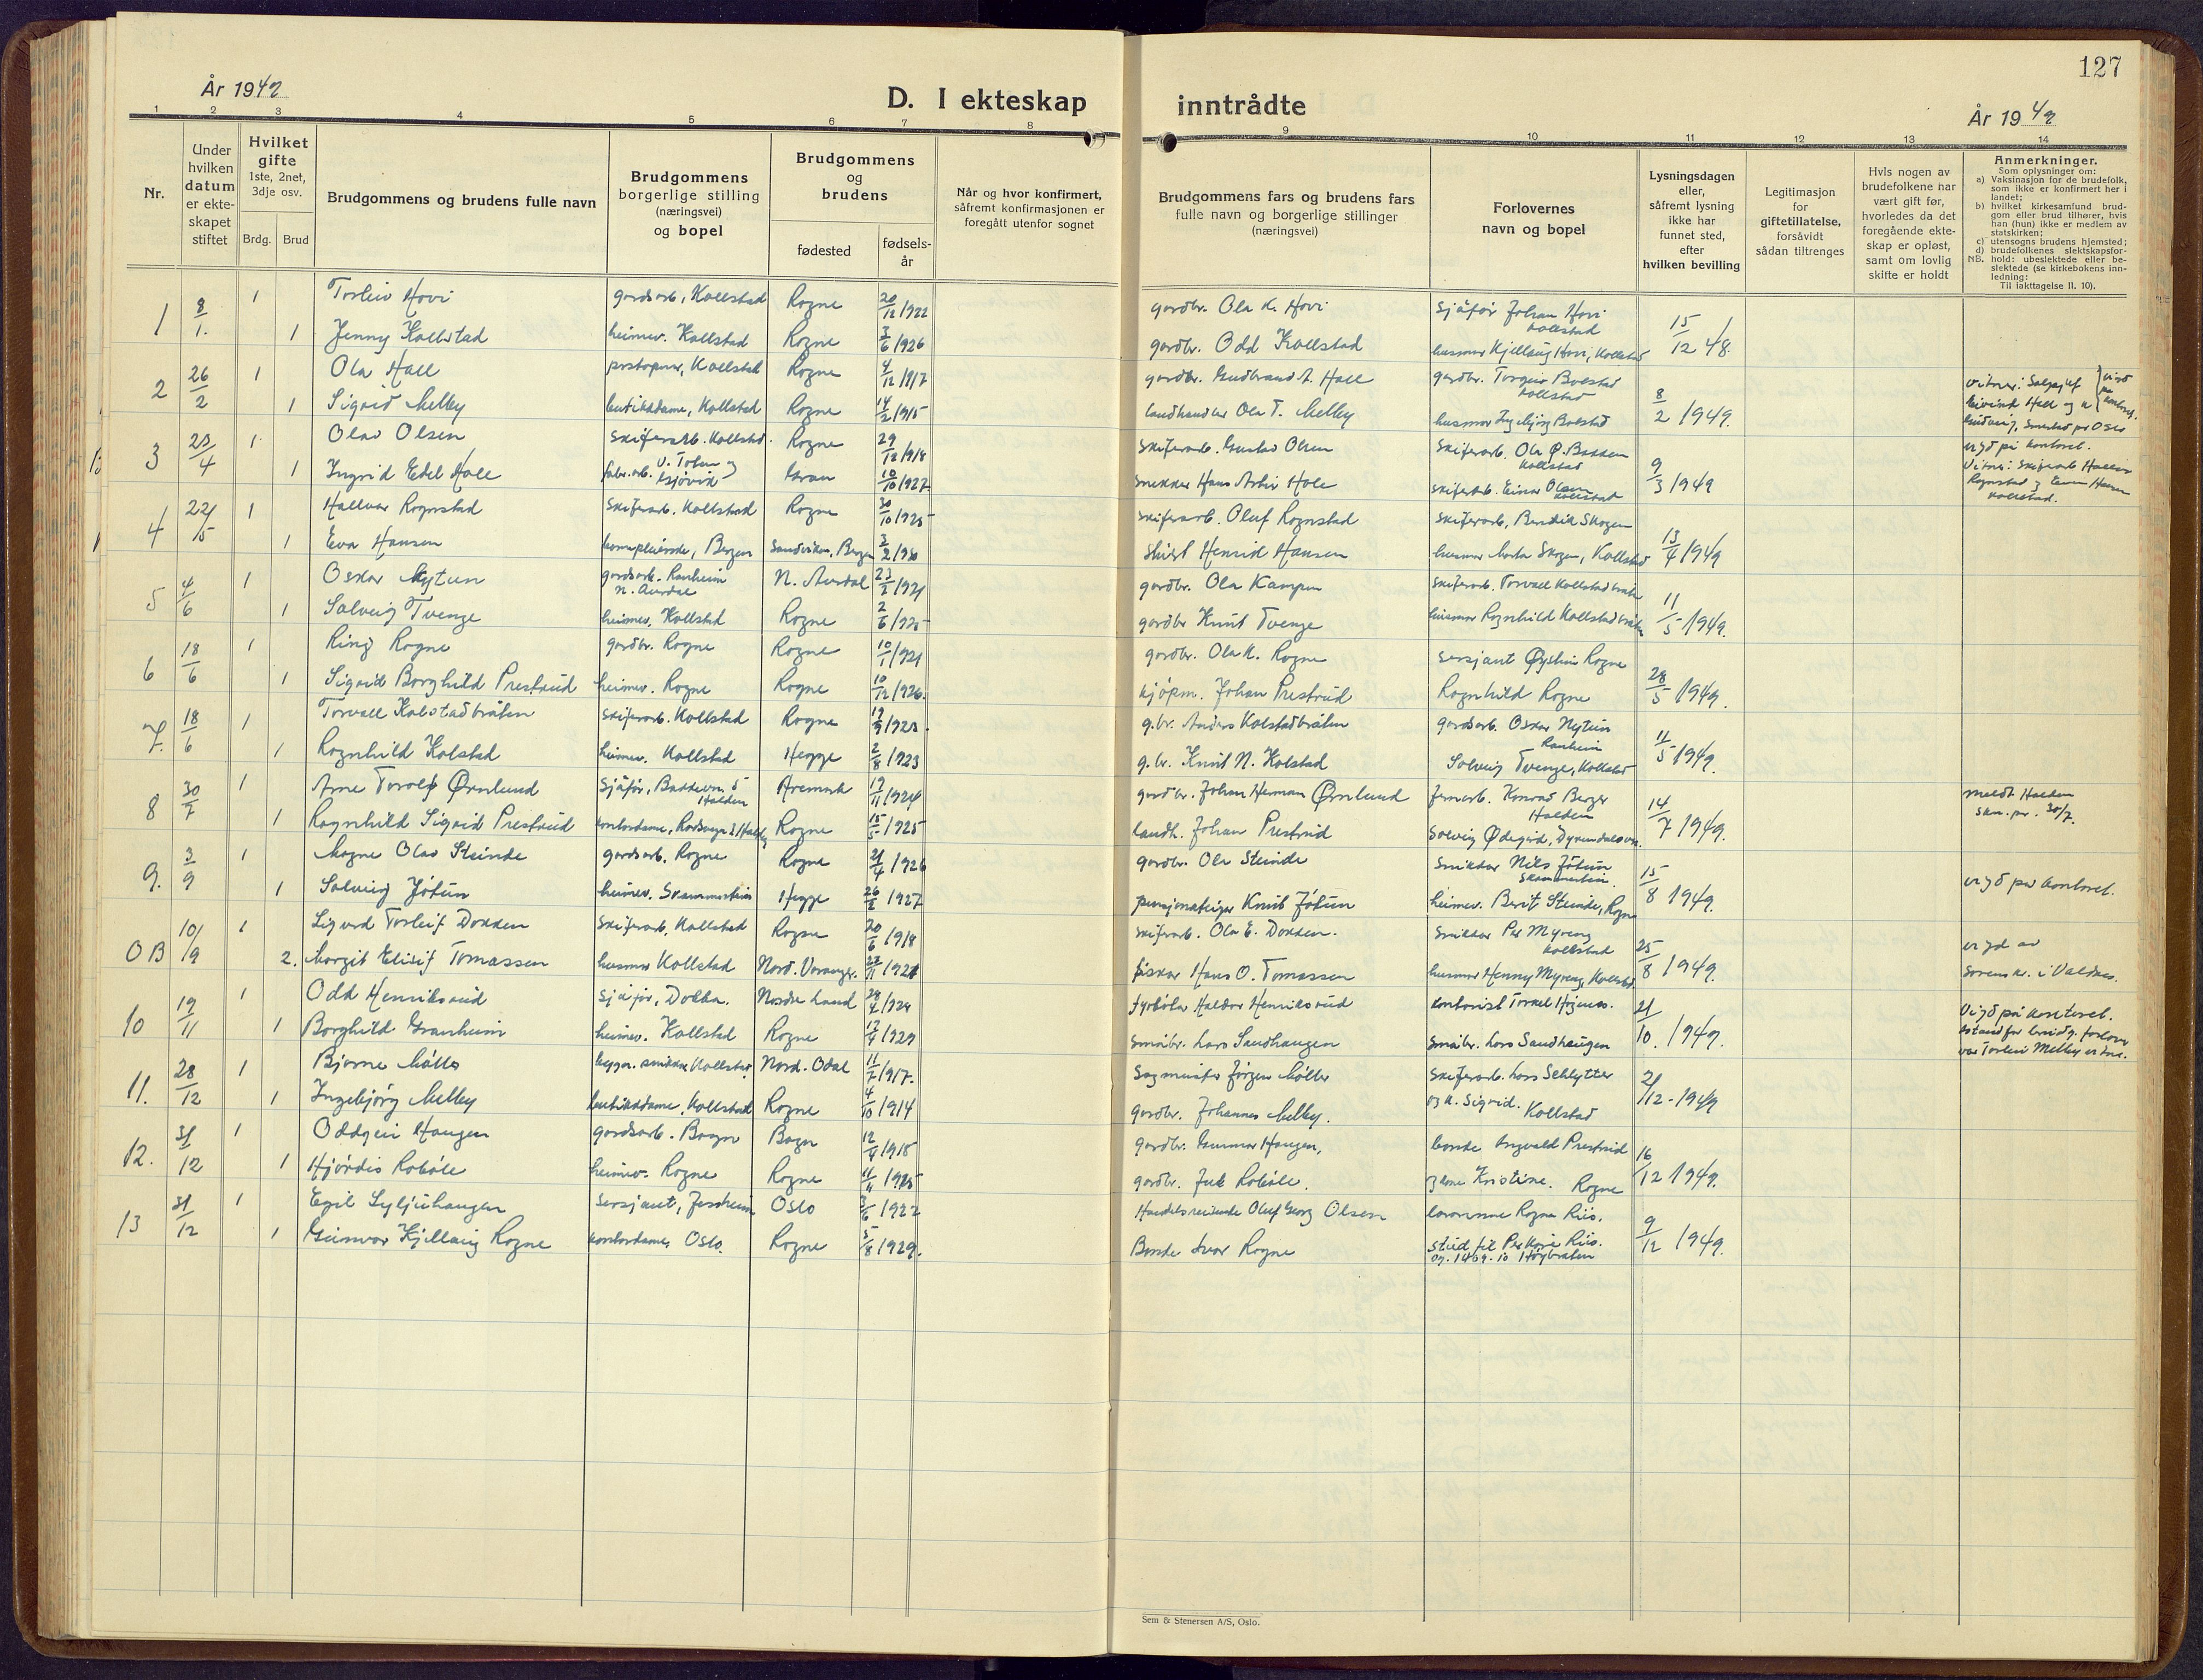 127
År 1949
D. I ekteskap inntrådte
År 1949
1 2 3 4 5 6 7 8 9 10 11 12 13 14
Nr.
Under hvilken datum er ekteskapet stiftet
Hvilket gifte 1ste, 2net, 3dje osv.
Brdg. Brud
Brudgommens og brudens fulle navn
Brudgommens borgerlige stilling (næringsvei) og bopel
Brudgommens og brudens
fødested
fødsels-år
Når og hvor konfirmert, såfremt konfirmasjonen er foregått utenfor sognet
Brudgommens fars og brudens fars fulle navn og borgerlige stillinger (næringsvei)
Forlovernes navn og bopel
Lysningsdagen eller, såfremt lysning ikke har funnet sted, efter hvilken bevilling
Legitimasjon for giftetillatelse, forsåvidt sådan tiltrenges
Hvis nogen av brudefolkene har vært gift før, hvorledes da det foregående ekteskap er opløst, samt om lovlig skifte er holdt
Anmerkninger.
Som oplysninger om:
a) Vaksinasjon for de brudefolk, som ikke er konfirmert her i landet;
b) hvilket kirkesamfund brudgom eller brud tilhører, hvis han (hun) ikke er medlem av statskirken;
c) utensogns brudens hjemsted;
d) brudefolkenes slektskapsforhold: ubeslektede eller beslektede (se kirkebokens innledning:
NB. Til iakttagelse II. 10).
1 8/1. 1 Torleiv Hovi gardsarb, Kollstad Rogne 20/12 1922 gardbr. Ola K. Hovi sjåfør Johan Hovi Kollstad
1 Jenny Kollstad heimev. Kollstad Rogne 3/6 1926 gardbr. Odd Kollstad husmor Kjellaug Hovi, Kollstad 15/12 48.
2 26/2 1 Ola Hall Kollstad Rogne 4/12 1917 gardbr. Gudbrand A. Hall gardbr. Bolstad Kollstad
1 Sigrid Melby butikkdame, Kollstad Rogne 14/2 1915 landhandler Ola T. Melby husmor Ingebjørg Bolstad 8/2 1949.
3 23/4 1 Olav Olsen Skiferarb. Kollstad. Rogne 29/12 1918 Skiferarb. Gustav Olsen Skiferarb. Ola Ø. Bakken Kollstad
1 Ingrid Edel Hole fabr.arb. V. Toten Gjøvik 10/10 1927 snekker Hans Hole skiferarb. Einar Olsen Kollstad 9/3 1949
vigd på kontoret.
4 22/5 1 Hallvar Rognstad Skiferarb. Kollstad Rogne 30/10 1925 skiferarb. Oluf Rognstad skiferarb. Bendik Skogen
1 Eva Hansen Bergen Sandviken, Bergen 3/2 1930 Henrid Hansen husmor Marta Skogen, Kollstad 13/4 1949
5 4/6 1 Oskar Nytun gardsarb. Ranheim N. Aurdal N. Aurdal 1921 gardbr. Ola Kampen skiferarb. Torvall Kollstadbråten
1 Solveig Tvenge heimev. Kollstad Rogne 2/6 1925 gardbr Knut Tvenge husmor Ragnhild Kollstadbråten 11/5 1949.
6 18/6 1 Ring Rogne gardbr. Rogne Rogne 10/1 1921 gardbr. Ola K. Rogne sersjant Øystein Rogne
1 Sigrid Borghild Prestrud heimev. Rogne Rogne 10/12 1926. kjøpm. Johan Prestrud Ragnhild Rogne 28/5 1949.
7. 18/6 1 Torvall Kolstadbråten skiferarb. Kollstad Rogne 1923. g.br. Anders Kolstadbråten gardsarb. Oskar Nytun Ranheim
1 Ragnhild Kolstad heimev. Kollstad Hegge 2/8 1923 g.br. Knut N. Kolstad Solveig Tvenge, Kollstad 11/5 1949.
8 30/7 1 Arne Torolf Ørnlund sjåfør, Halden Aremark 1924 gardbr. Johan Herman Ørnlund Konrad Berger Halden
1 Ragnhild Sigrid Prestrud kontordame, Halden Rogne 15/5 1925 landh. Johan Prestrud Solveig Ødegård, 14/7 1949.
meldt Halden 30/7.
9. 3/9 1 Magne Olav Steinde gardsarb. Rogne Rogne 21/4 1926 gardbr. Ola Steinde snikkar Nils Jøtun Skammestein
1 Solveig Jøtun heimev. Skammestein Hegge 26/2 1927 pensjonateigar Knut Jøtun heimev. Berit Steinde, Rogne 15/8 1949. vigd på kontoret.
0B 10/9 1 Sigurd Torleif Dokken Skiferarb. Kollstad Rogne 20/6 1918 skiferarb. Ola E. Dokken. snikkar Per Myreng Kollstad
2. Margit Elisif Tomassen husmor Kollstad Nord-Varanger. 1921 fiskar Hans O. Tomassen husmor Henny Myreng, Kollstad 25/8 1949. vigd av sorenskr. i Valdres.
10 19/11 1 Odd Henriksrud sjåfør, Dokka. Nordre Land 1924 fyrbøter Haldor Henriksrud kontorist Torkel
1 Borghild Granheim heimev. Kollstad Rogne 17/4 1929 småbr. Lars Sandhaugen småbr. Lars Sandhaugen 21/10. 1949. Vigd på kontoret.
11. 28/12 1 Bjarne Møller Kollstad. Nord-Odal 11/7 1917. Sagmester Jørgen Møller skiferarb. Lars Schlytter
1 Ingebjørg Melby butikkdame, Kollstad Rogne 4/10 1914 gardbr. Johannes Melby. og k. Sigrid. Kollstad 2/12 - 1949
12. 31/12 1 Oddgeir Haugen gardsarb. Bagn Bagn 1918 gardbr. Gunnar Haugen, bonde Ingvald Prestrud
1 Hjørdis Robøle heimev. Rogne Rogne 4/11 1925 gardbr. Robøle. og kone Kristine. Rogne 16/12 1949.
13 31/12 1 Egil Syljuhaugen sersjant, Jessheim Oslo 3/6 1922 Handelsreisende Oluf Georg Olsen Ragna Riis.
1 Gunvor Kjellaug Rogne kontordame, Oslo. Rogne 5/8 1929. Bonde Ivar Rogne stud. fil Per Kåre Riis. 9/12 1949.
Sem & Stenersen A/S, Oslo.